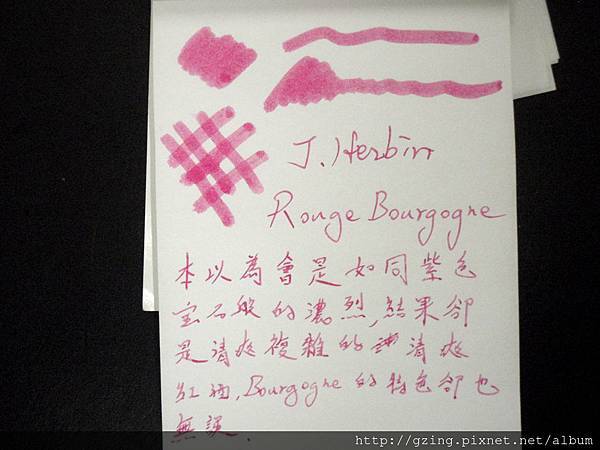 J. Herbin
Rouge Bourgogne
本以為會是如同紫色
宝石般的濃烈,結果卻
是清爽複雜的清爽
紅酒,Bourgogne 的特色卻也
無誤.
http://gzing.pixnet.net/album